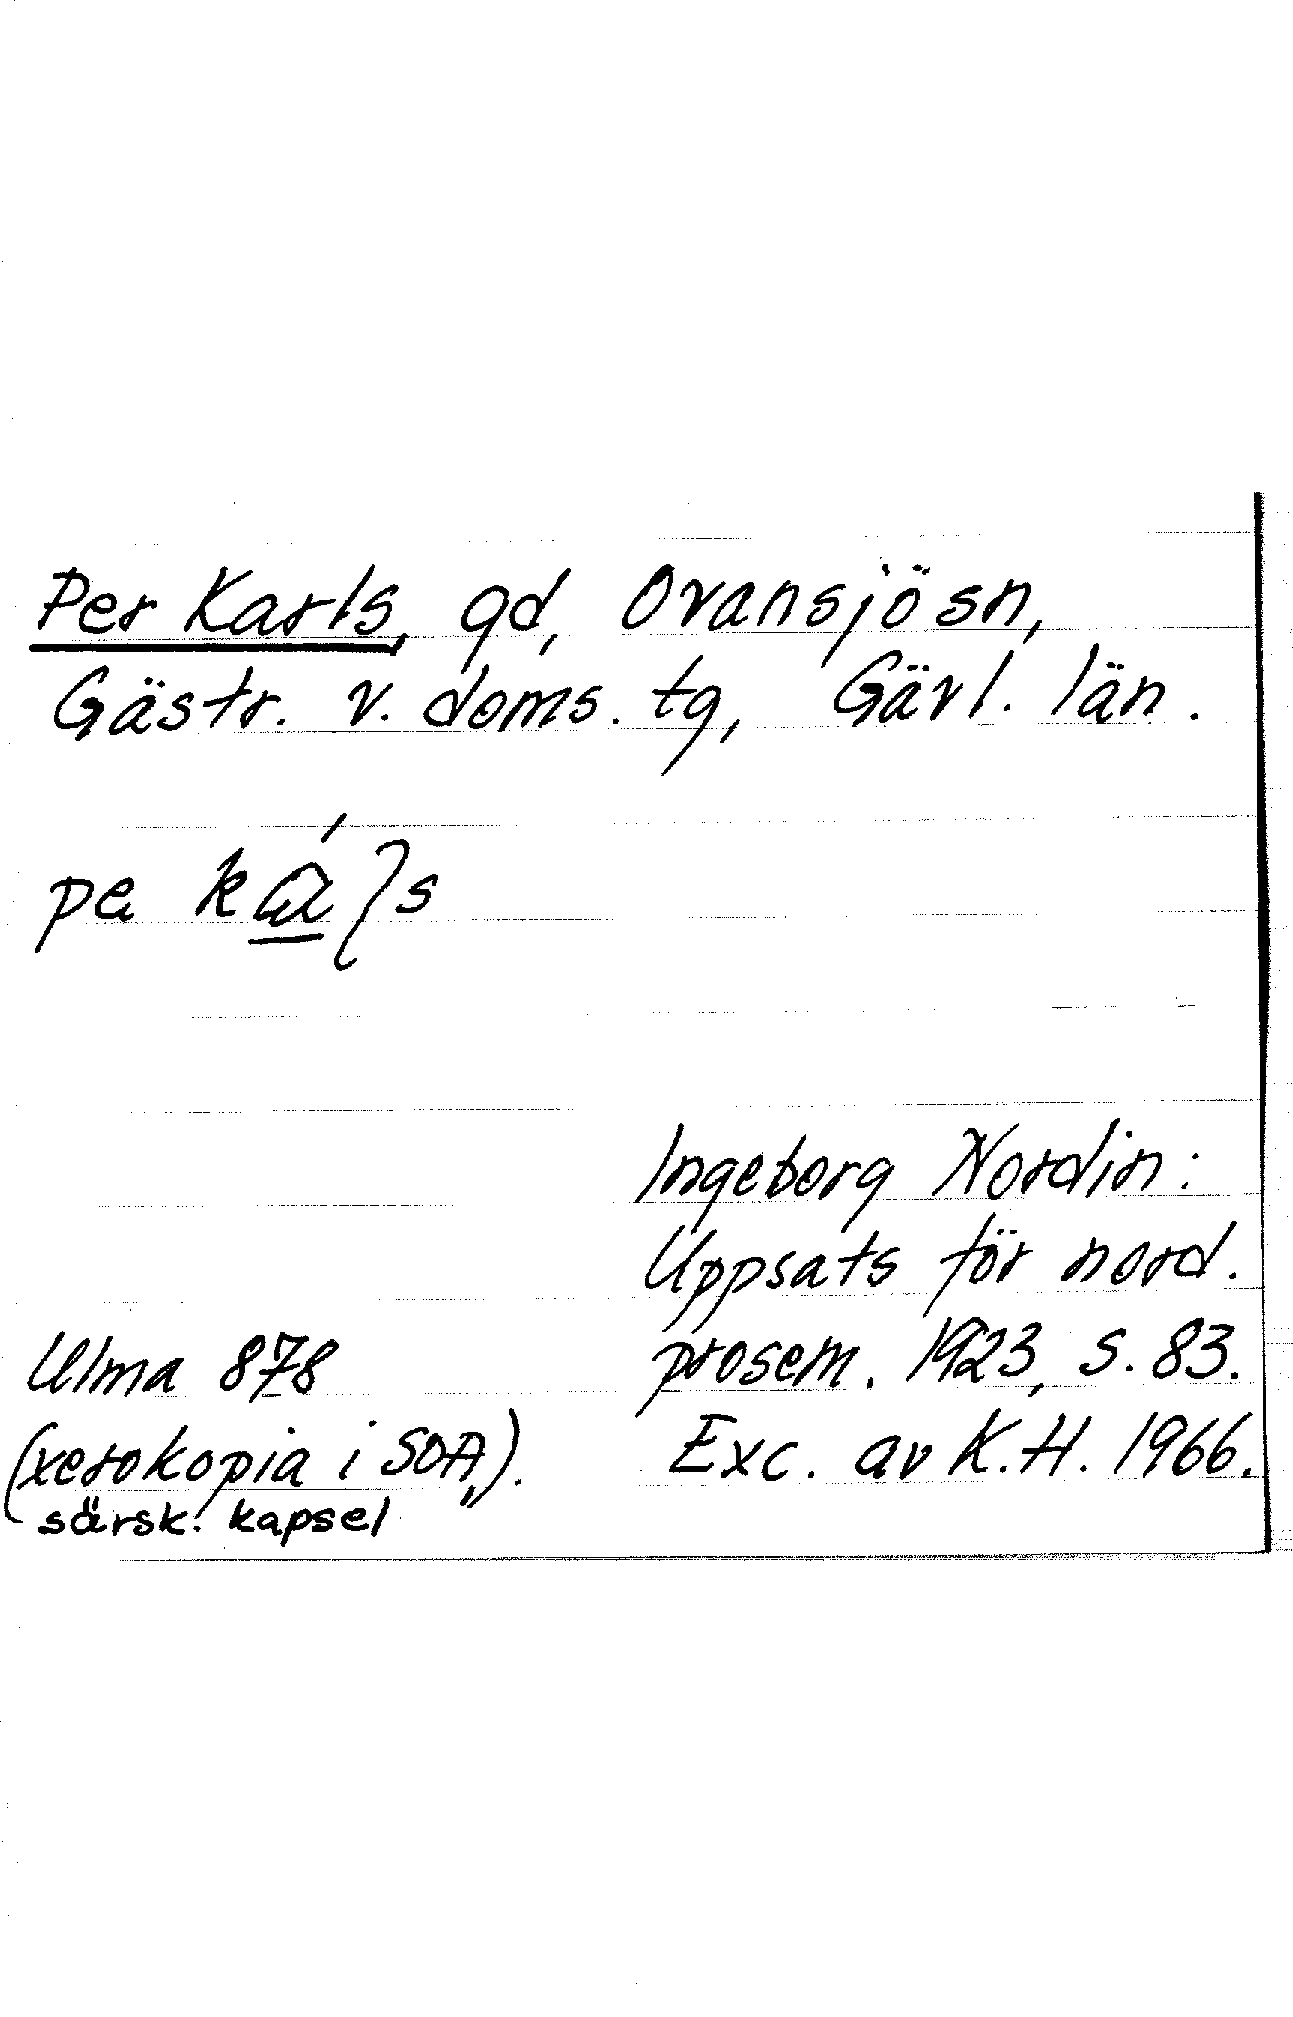 Per Karls, gd, Ovansjösn,
Gästr. v. doms. tg, Gävl. län.
pe
Ingeborg Nordin:
Uppsats för nord.
prosem. 1923, s. 83.
Exc. av K.H. 1966.
Ulma 878
(xerokopia i SOA,,).
särsk. kapsel